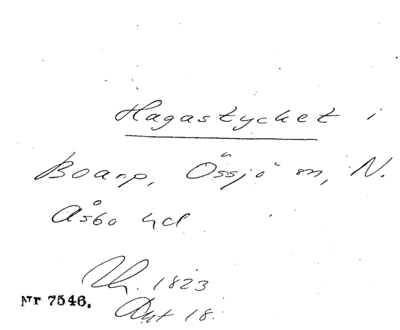 Hagastycket i
Boarp, Össjö sn, N.
Åsbo hd
1823
Akt 18.
Nr 7546.